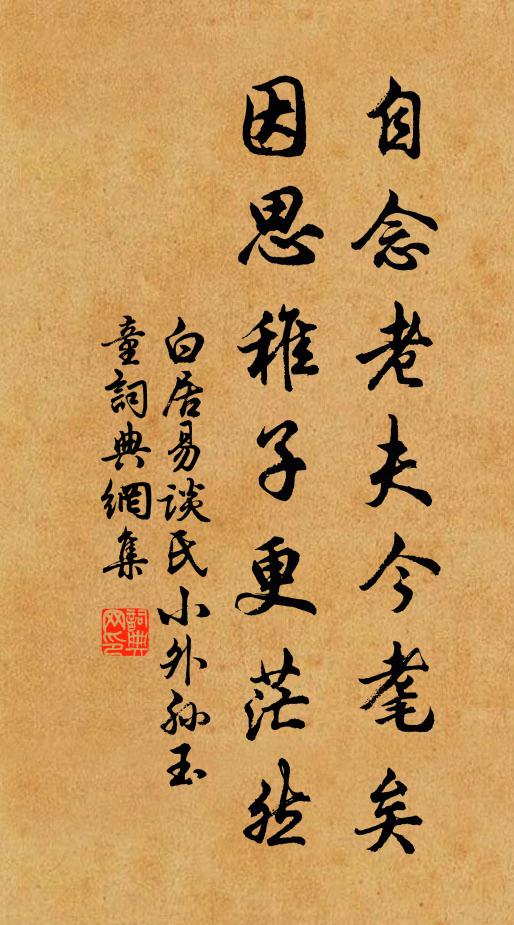 自念老夫今耄矣
因思稚子更茫然
白居易談氏小外孫玉
童詞典網集
詞典
网印